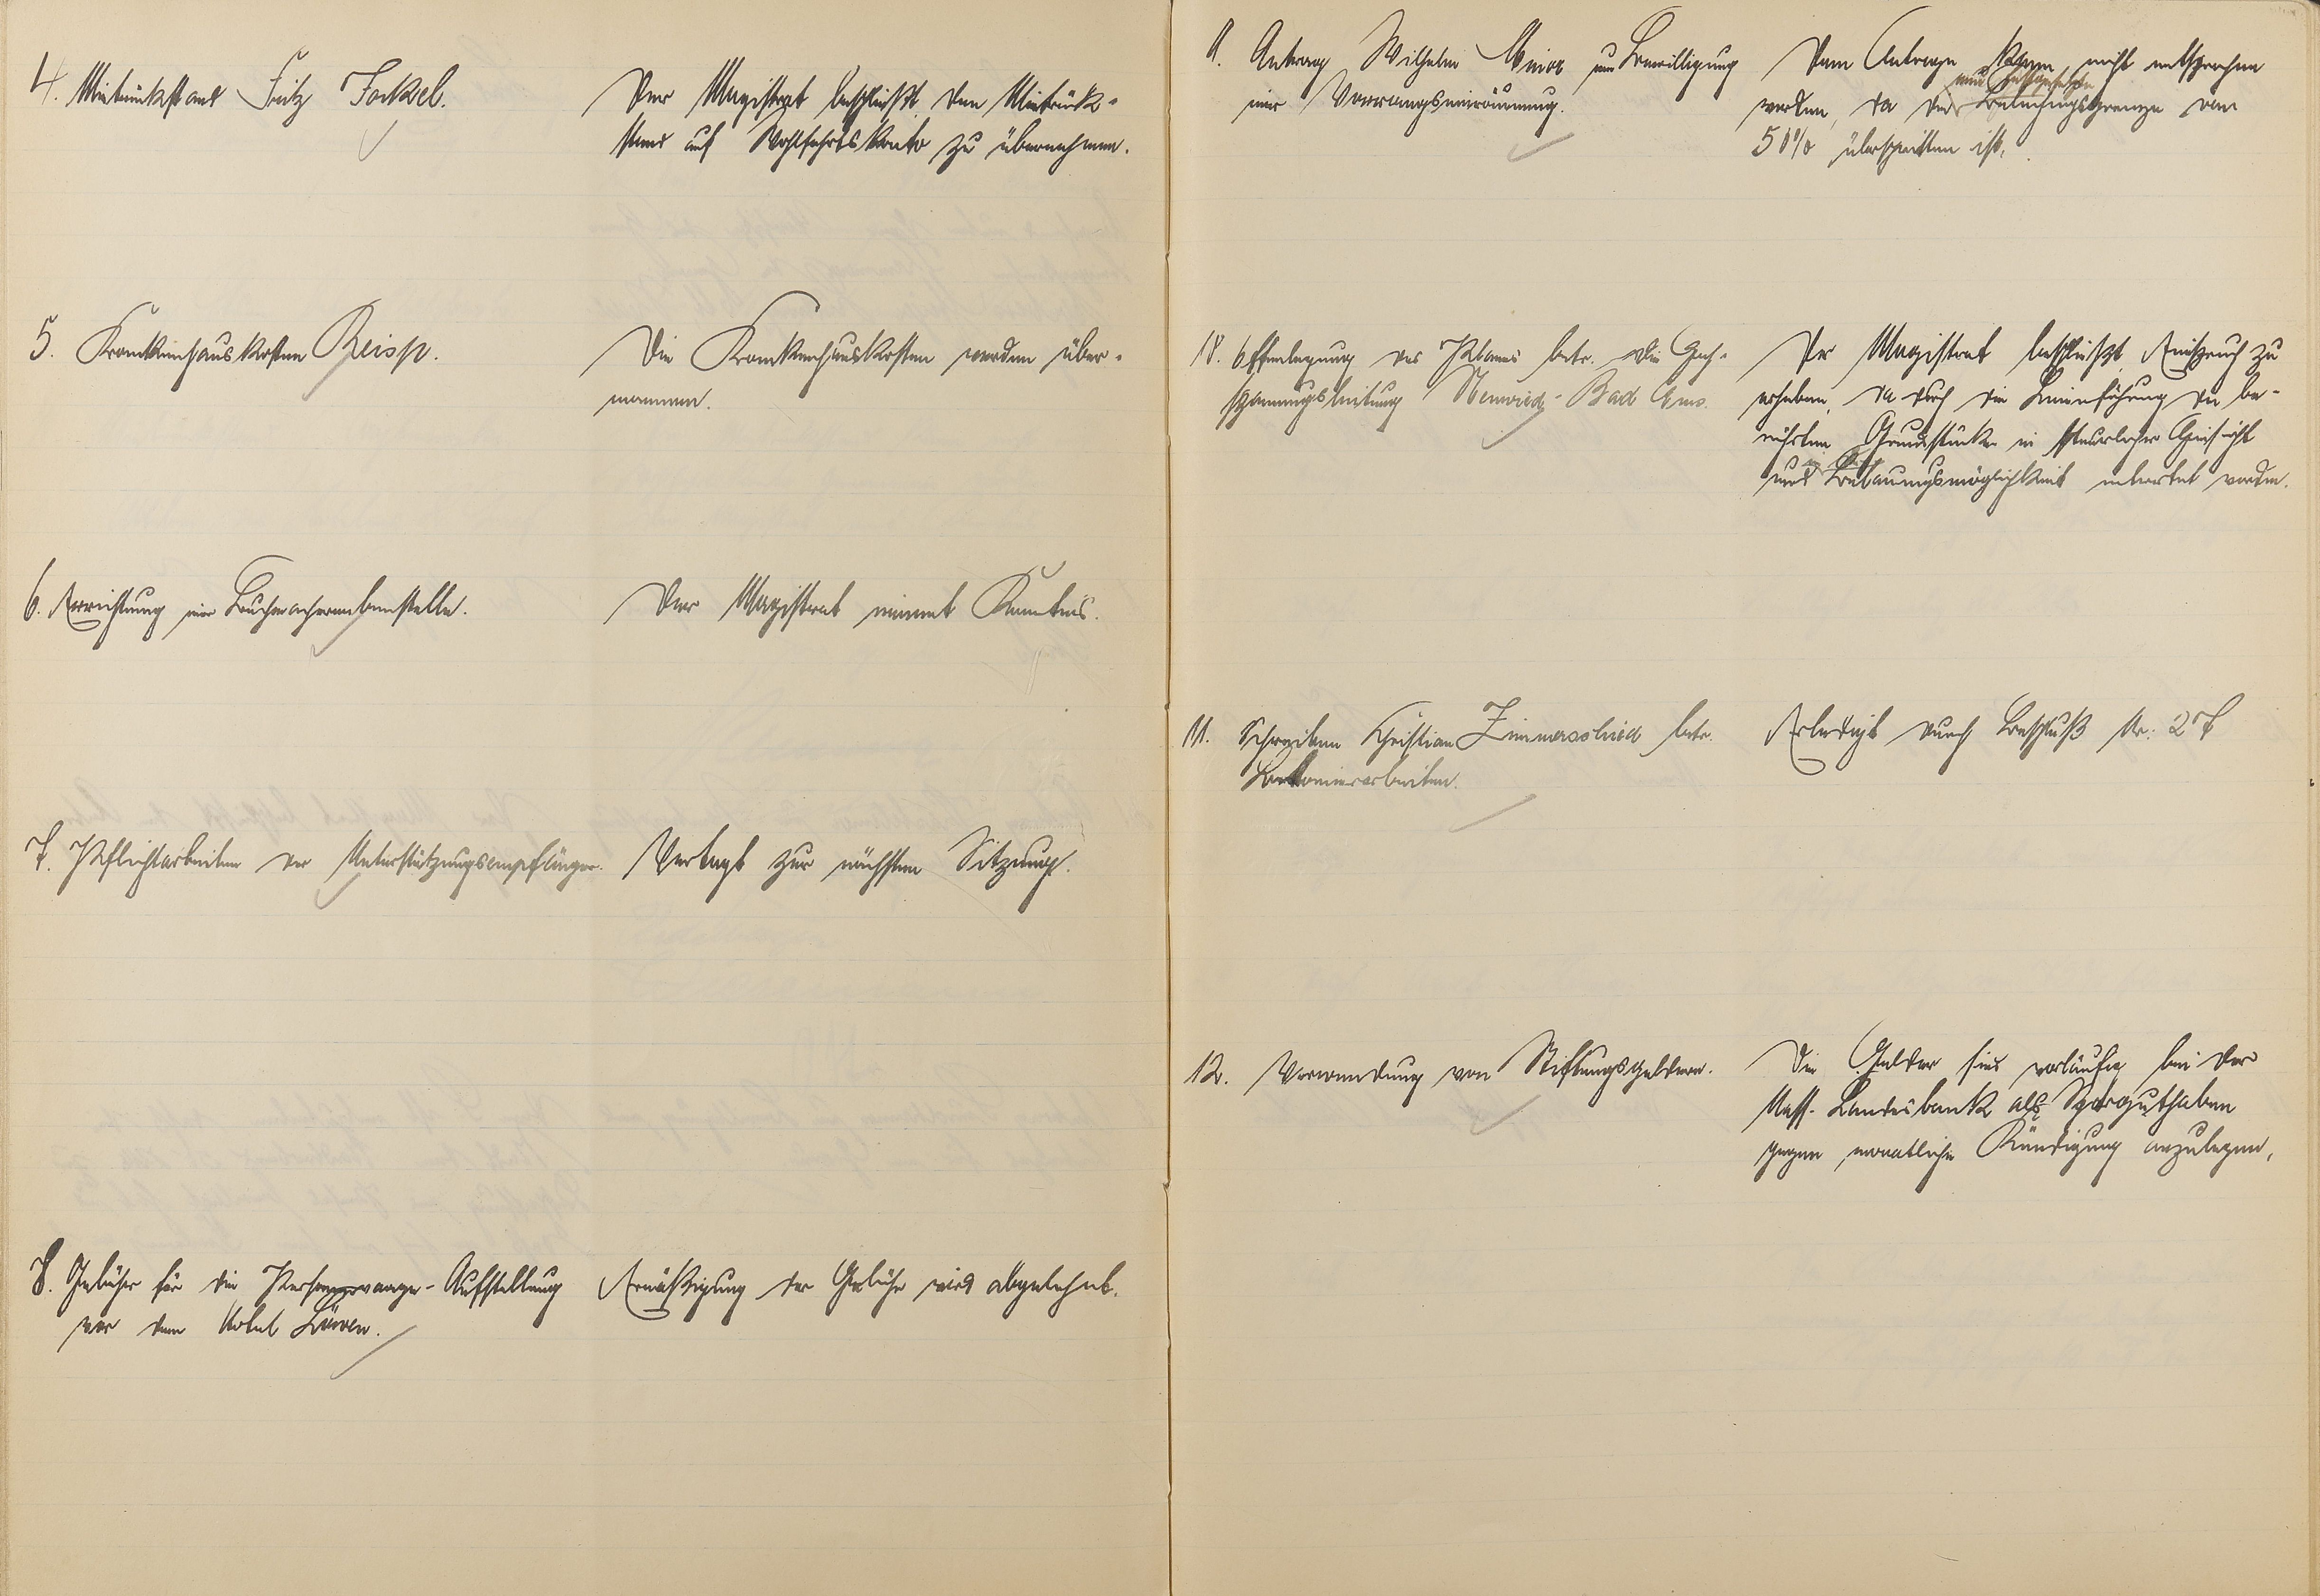 4. Mietrückstand Fritz Jockel.
Der Magistrat beschließt, den Mietrück-
stand auf Wohlfahrtskonto zu übernehmen.
5. Krankenhauskosten Reisp.
Die Krankenhauskosten werden über-
nommen.
6. Errichtung einer Buchmachernebenstelle.
Der Magistrat nimmt Kenntnis.
7. Pflichtarbeiten der Unterstützungsempfänger.
Vertagt zur nächsten Sitzung.
8. Gebühr für die Personenwaage-Aufstellung
vor dem Hotel Löwen.
Ermäßigung der Gebühr wird abgelehnt.
9. Antrag Wilhelm Minor um Bewilligung
einer Vorrangseinräumung.
Dem Antrage kann nicht entsprochen
werden, da die Beleihungsgrenze von
50% überschritten ist.
10. Offenlegung des Planes betr. die Hoch-
spannungsleitung Neuwied-Bad Ems.
Der Magistrat beschließt, Einspruch zu
erheben, da durch die Linienführung die be-
rührten Grundstücke in steuerlicher Hinsicht
und Bebauungsmöglichkeit entwertet werden.
11. Schreiben Christian Zimmerschied betr.
Betonierarbeiten.
Erledigt durch Beschluß Nr. 27
12. Verwendung von Stiftungsgeldern.
Die Gelder sind vorläufig bei der
Nass. Landesbank als Sparguthaben
gegen monatliche Kündigung anzulegen.